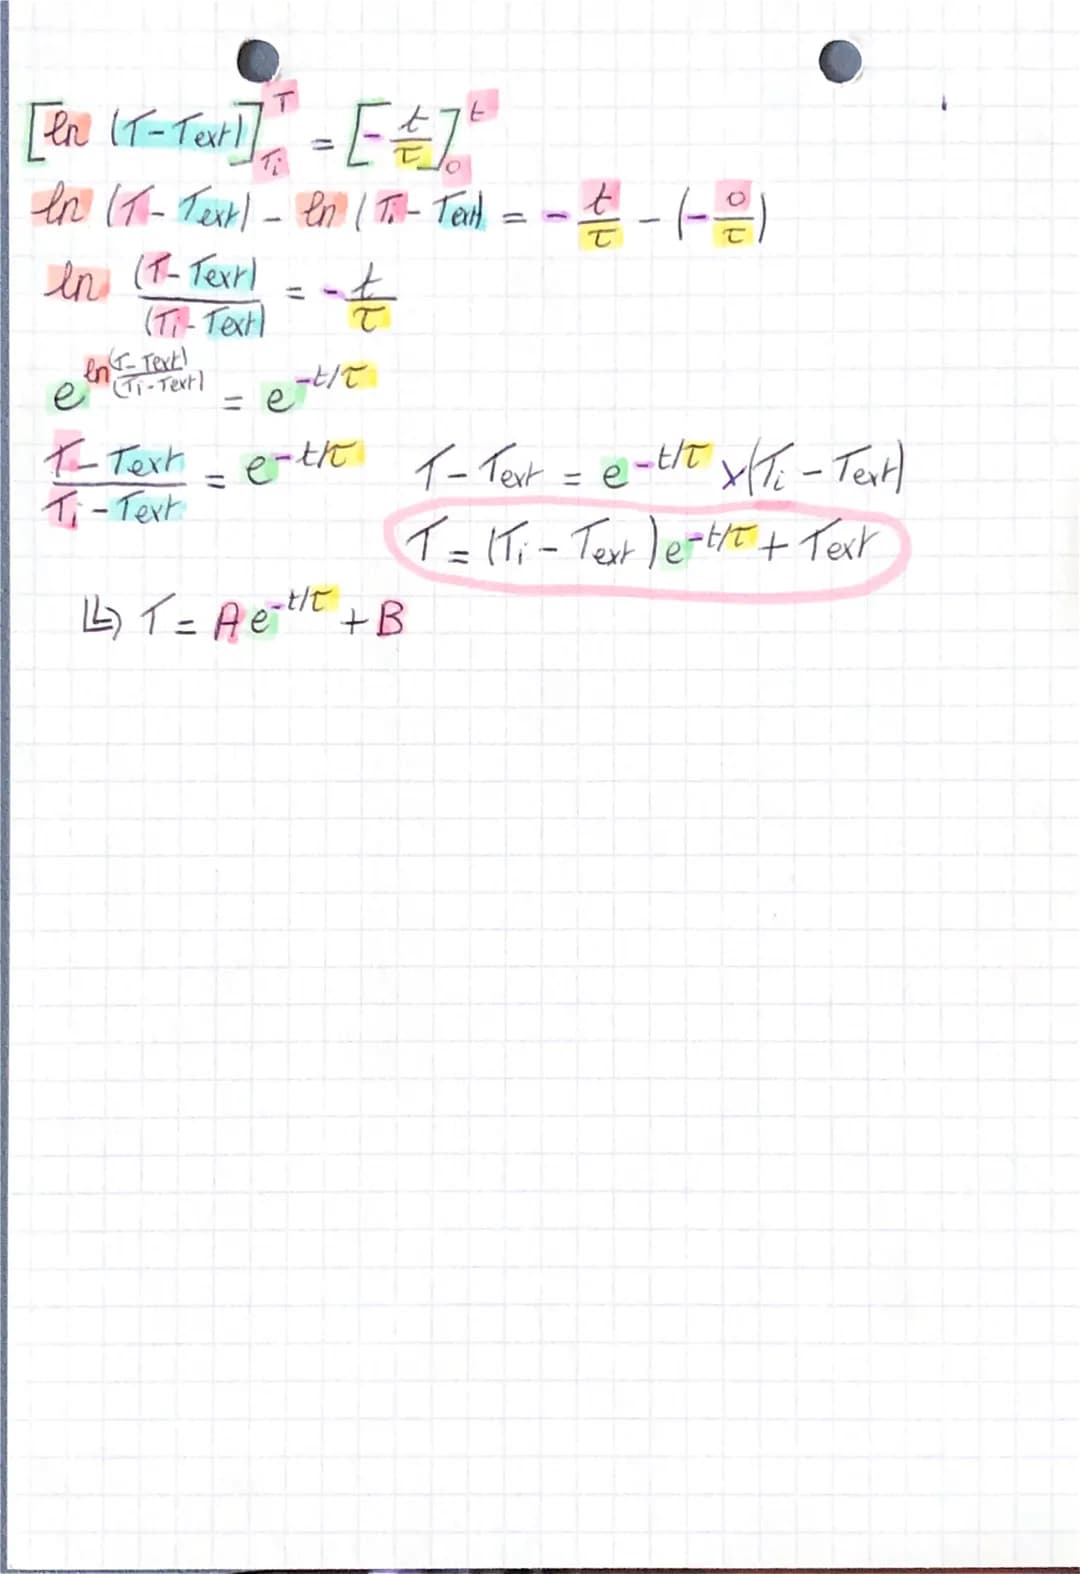 [ln (T-Text)]_Ti^T = [-t/τ]_0^t
ln (T-Text) - ln (Ti-Text) = -t/τ - (-0/τ)
ln (T-Text)/(Ti-Text) = -t/τ
e^(ln (T-Text)/(Ti-Text)) = e^(-t/τ)
(T-Text)/(Ti-Text) = e^(-t/τ) T-Text = e^(-t/τ) x(Ti-Text)
T = (Ti-Text)e^(-t/τ) + Text
↳ T = Ae^(-t/τ) + B